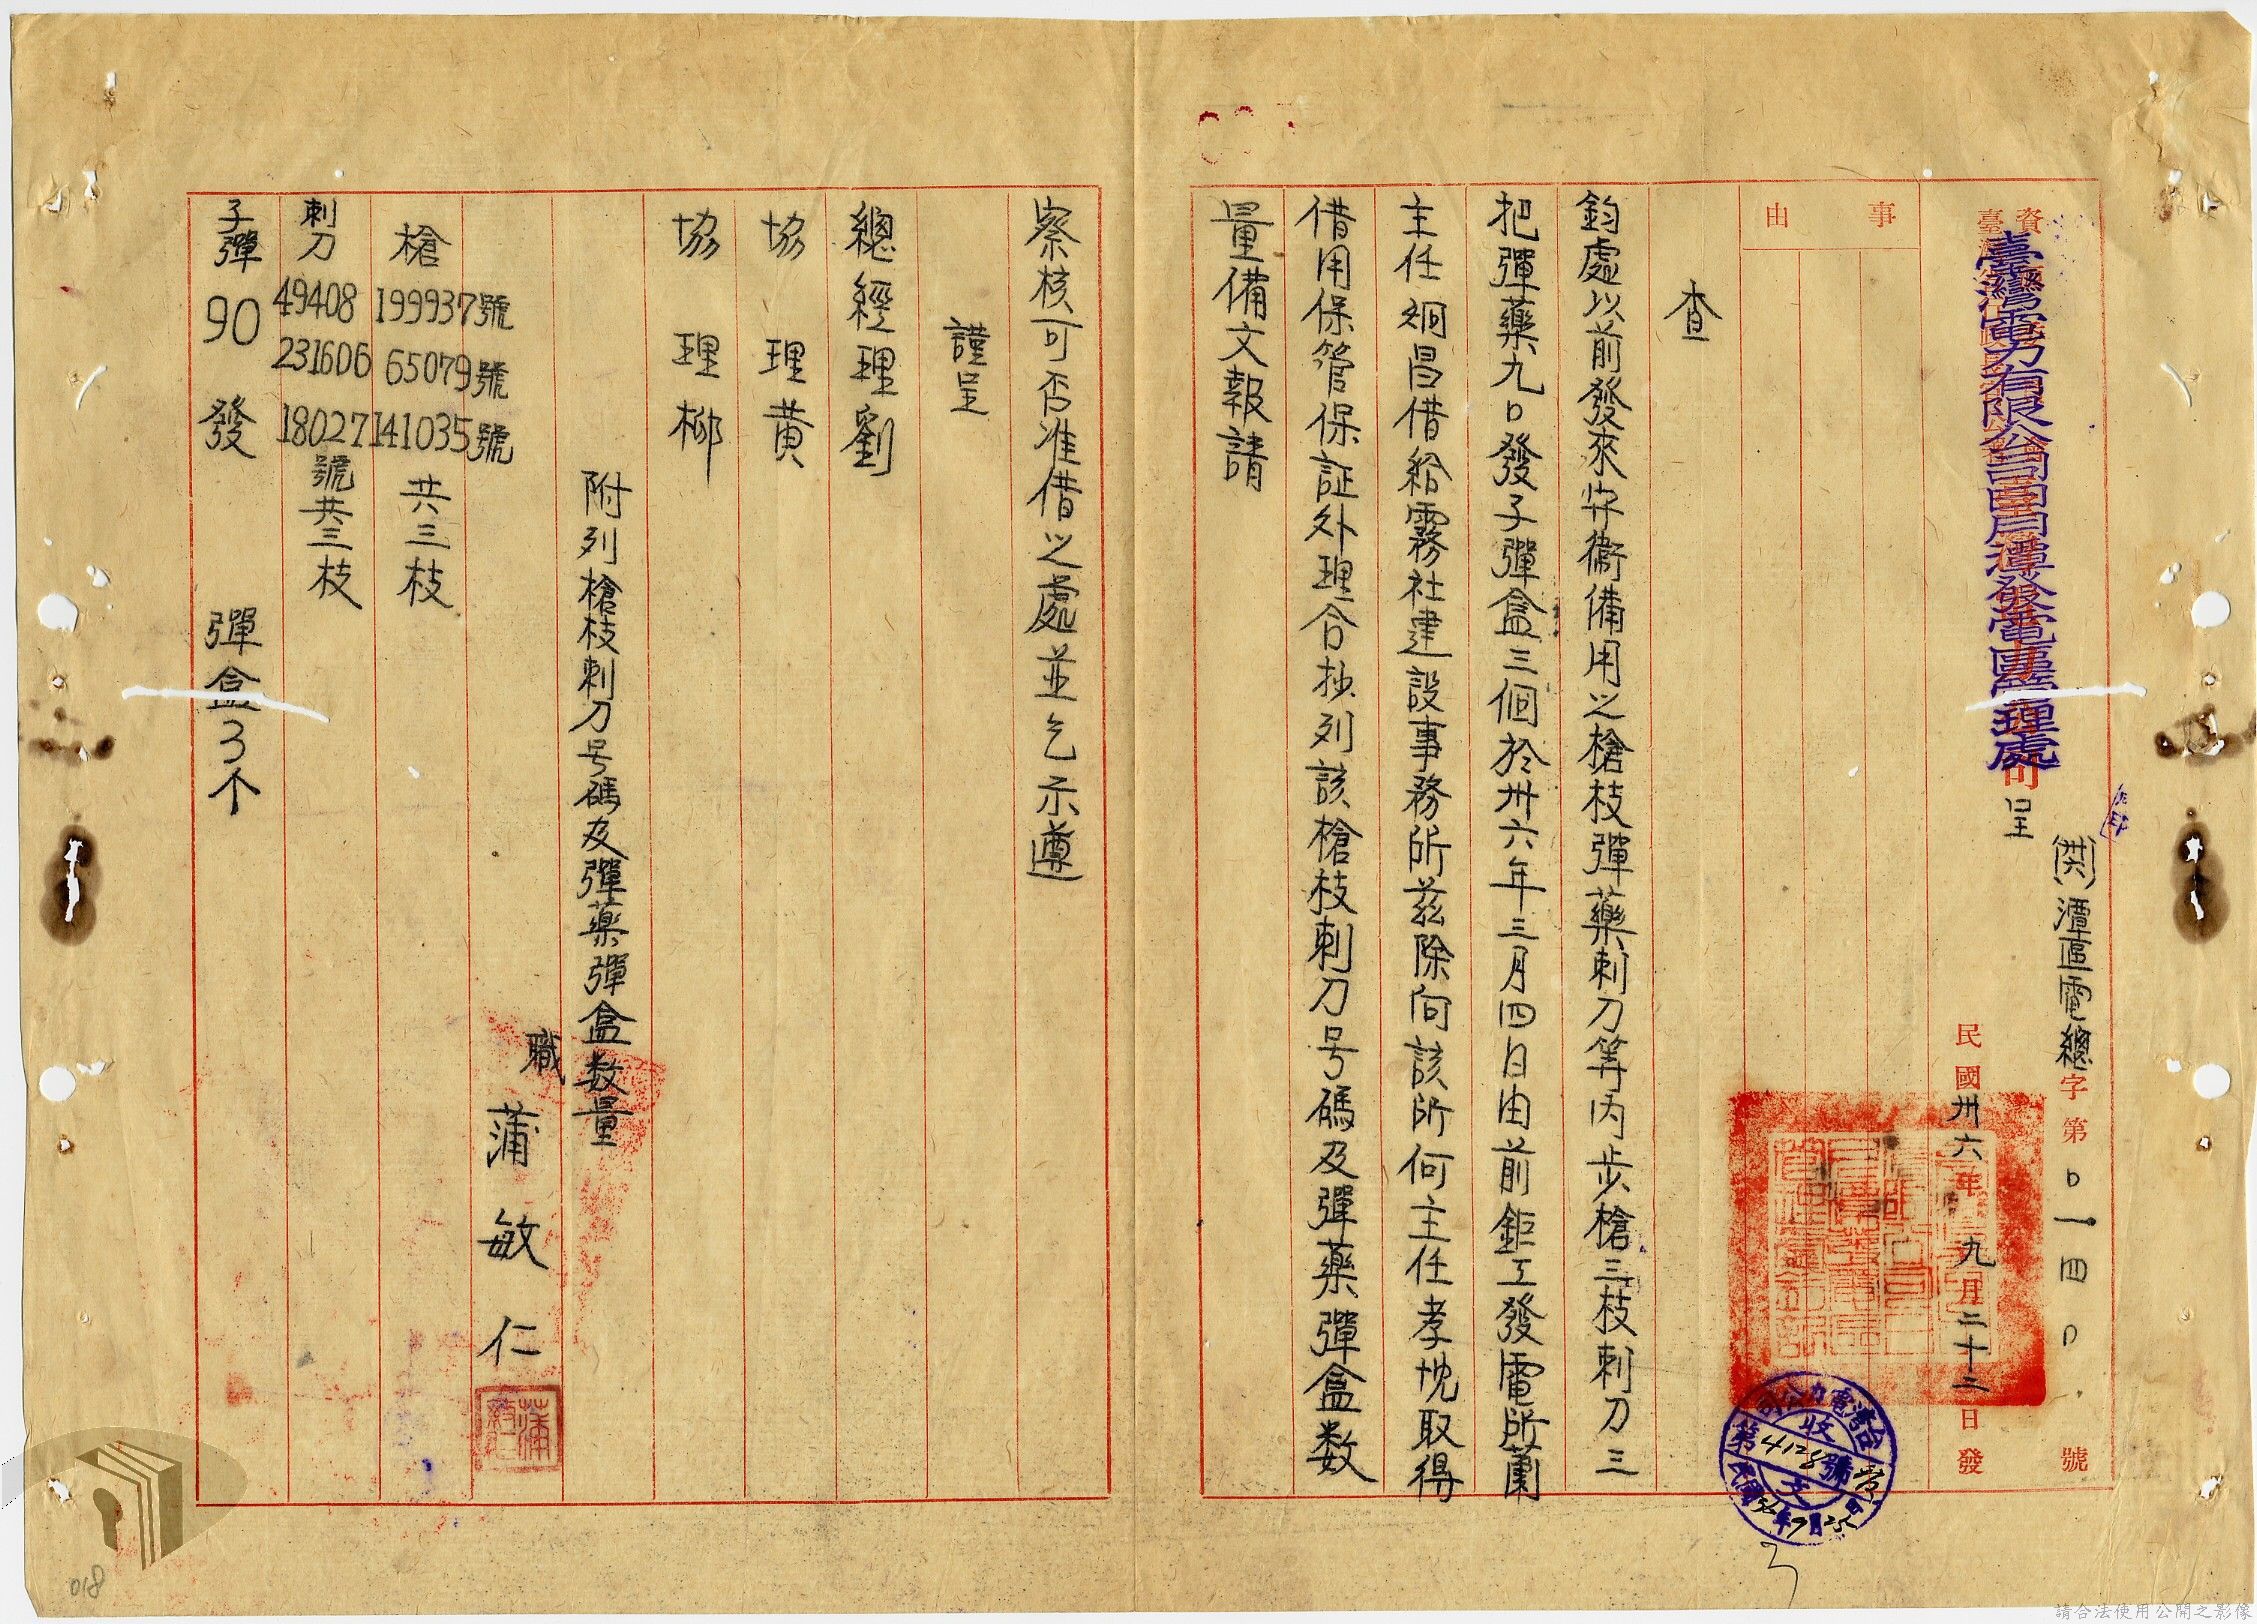 臺灣電力有限公司日月潭發電區管理處
呈
(卅六)潭區電總字第0一四0號
民國卅六年九月二十三日發
事由
查
鈞處以前發來守衛備用之槍枝彈藥刺刀等內步槍三枝刺刀三
把彈藥九0發子彈盒三個於卅六年三月四日由前鉅工發電所蕳
主任炯昌借給霧社建設事務所茲除向該所何主任孝忱取得
借用保管保証外理合抄列該槍枝刺刀号碼及彈藥彈盒数
量備文報請
察核可否准借之處並乞示遵
謹呈
總經理劉
協理黄
協理柳
附列槍枝刺刀号碼及彈藥彈盒数量
職
蒲敏仁
槍 199937號 65079號 141035號 共三枝
刺刀 49408 231606 18027號 共三枝
子彈 90 發 彈盒3个
台灣電力公司
收文
第4128號
民國36年9月25日
018
請合法使用公開之影像